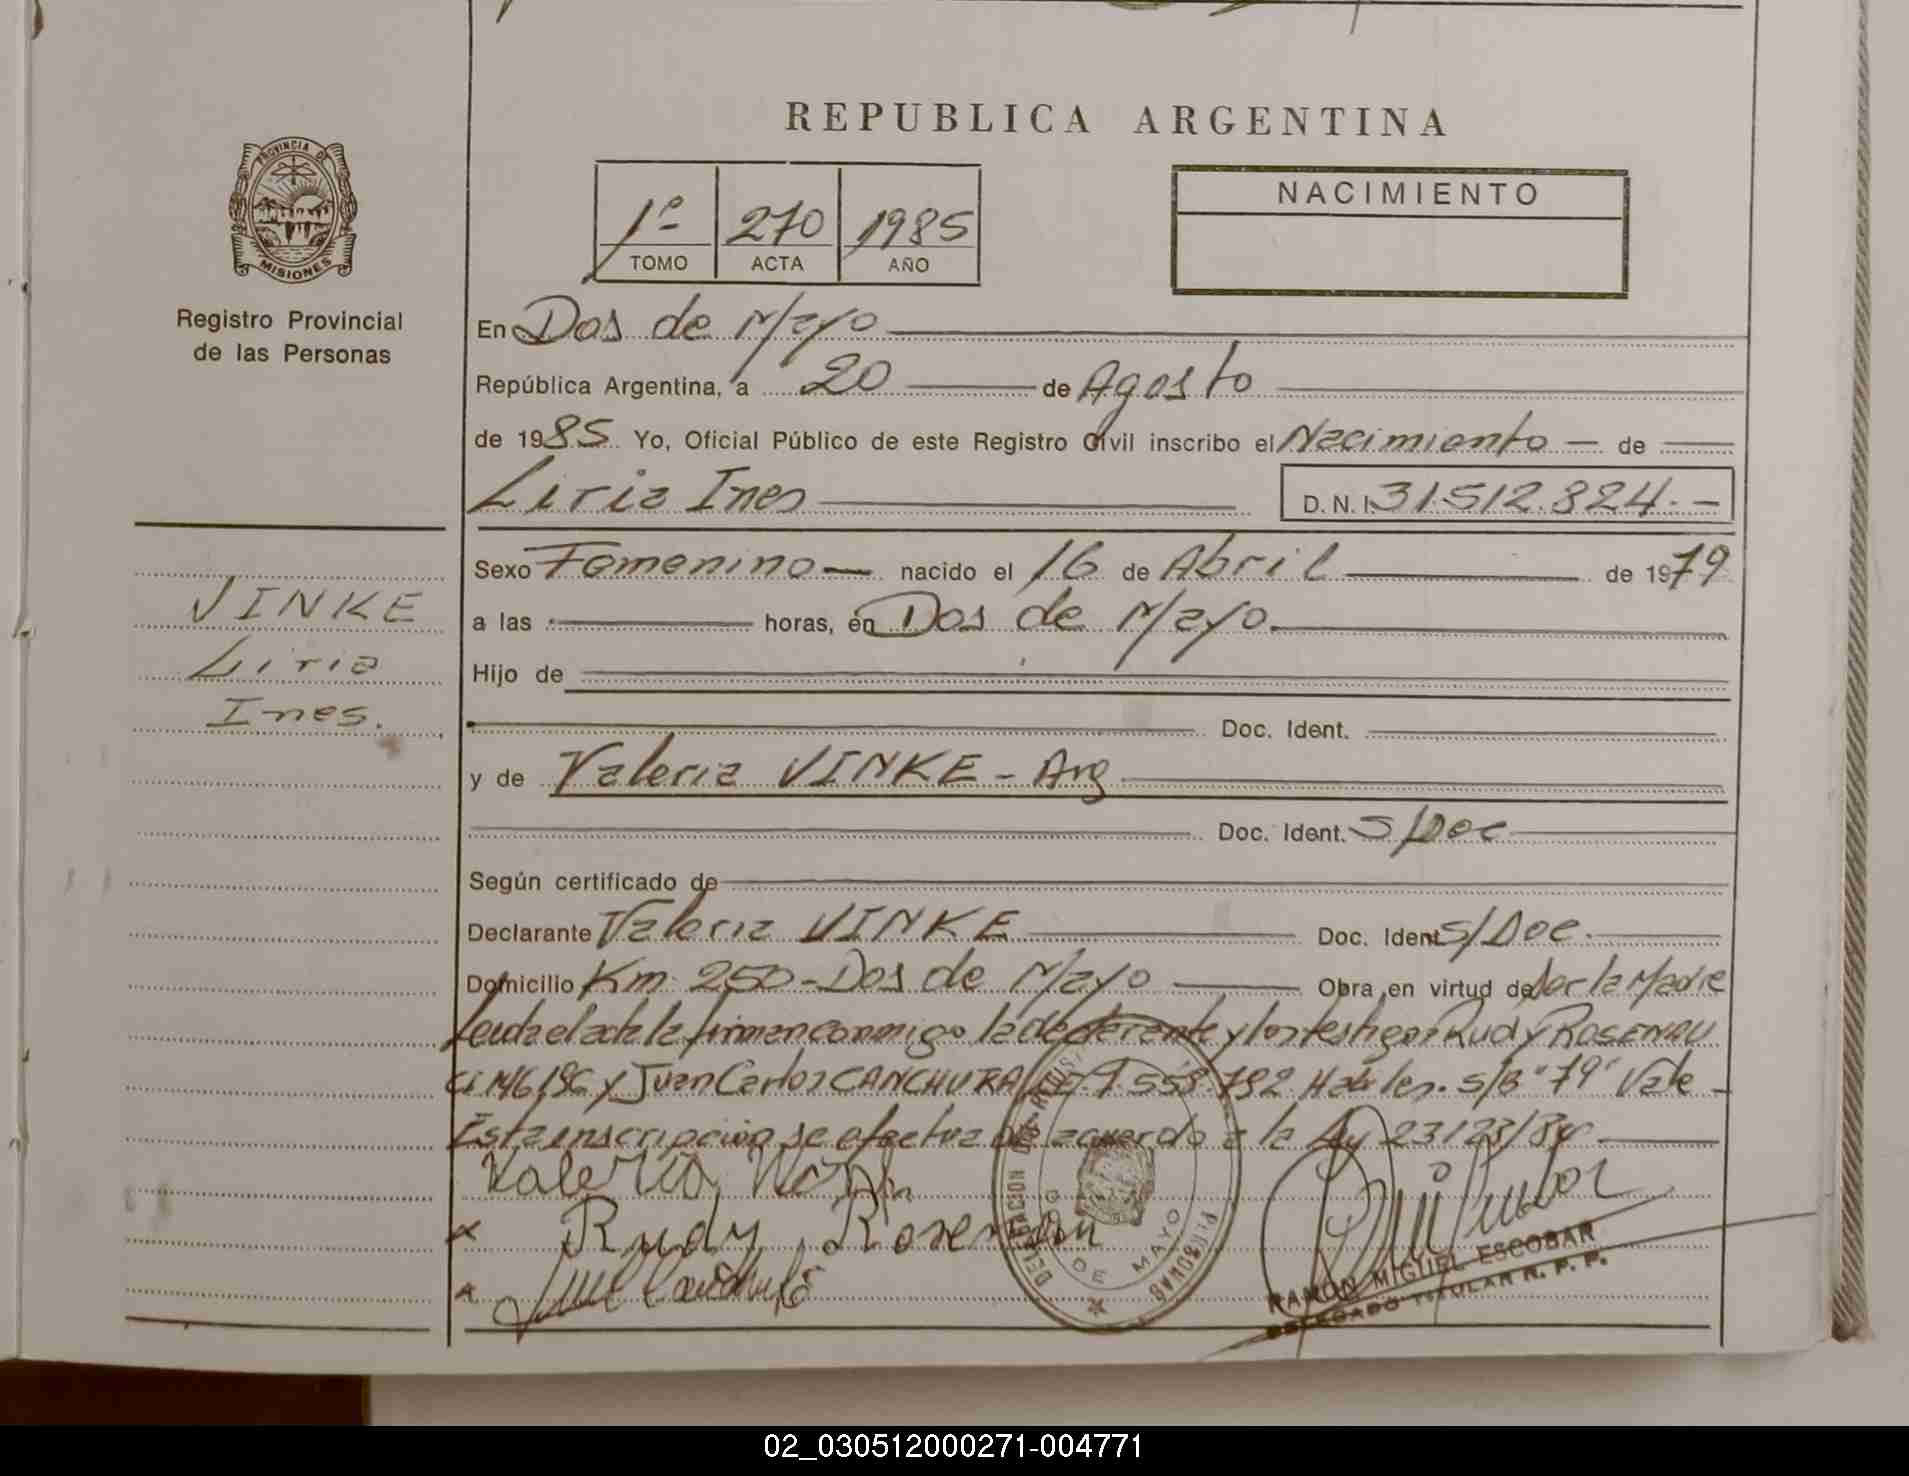 REPUBLICA ARGENTINA
PROVINCIA DE
MISIONES
Registro Provincial
de las Personas
1º 270 1985
TOMO ACTA AÑO
NACIMIENTO
En Dos de Mayo
República Argentina, a 20 de Agosto
de 1985 Yo, Oficial Público de este Registro Civil inscribo el Nacimiento de
Liria Ines D.N.I. 31.512.824.-
Sexo Femenino nacido el 16 de Abril de 1979
a las horas, en Dos de Mayo.
Hijo de
Doc. Ident.
y de Valeria VINKE - Arg
Doc. Ident. S/Doc
Según certificado de
Declarante Valeria VINKE Doc. Ident S/Doc.
Domicilio Km 250 - Dos de Mayo Obra en virtud de Ser la Madre
Leida el acta la firman conmigo la declarante y los testigos Rudy ROSENAU
CI 146.196 y Juan Carlos CANCHURA 7.558.792 Habiles. S/B "79" Vale -
Esta inscripción se efectua de acuerdo a la Ley 23123/84.
VINKE
Liria
Ines.
Valeria
x Rudy Rosenau
x
DELEGACION PERSONAS
DE MAYO
RAMON MIGUEL ESCOBAR
DELEGADO TITULAR R. P. P.
02_030512000271-004771